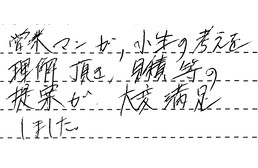 営業マンが、小生の考えを
理解頂き、見積等の
提案が 大変満足
しました。